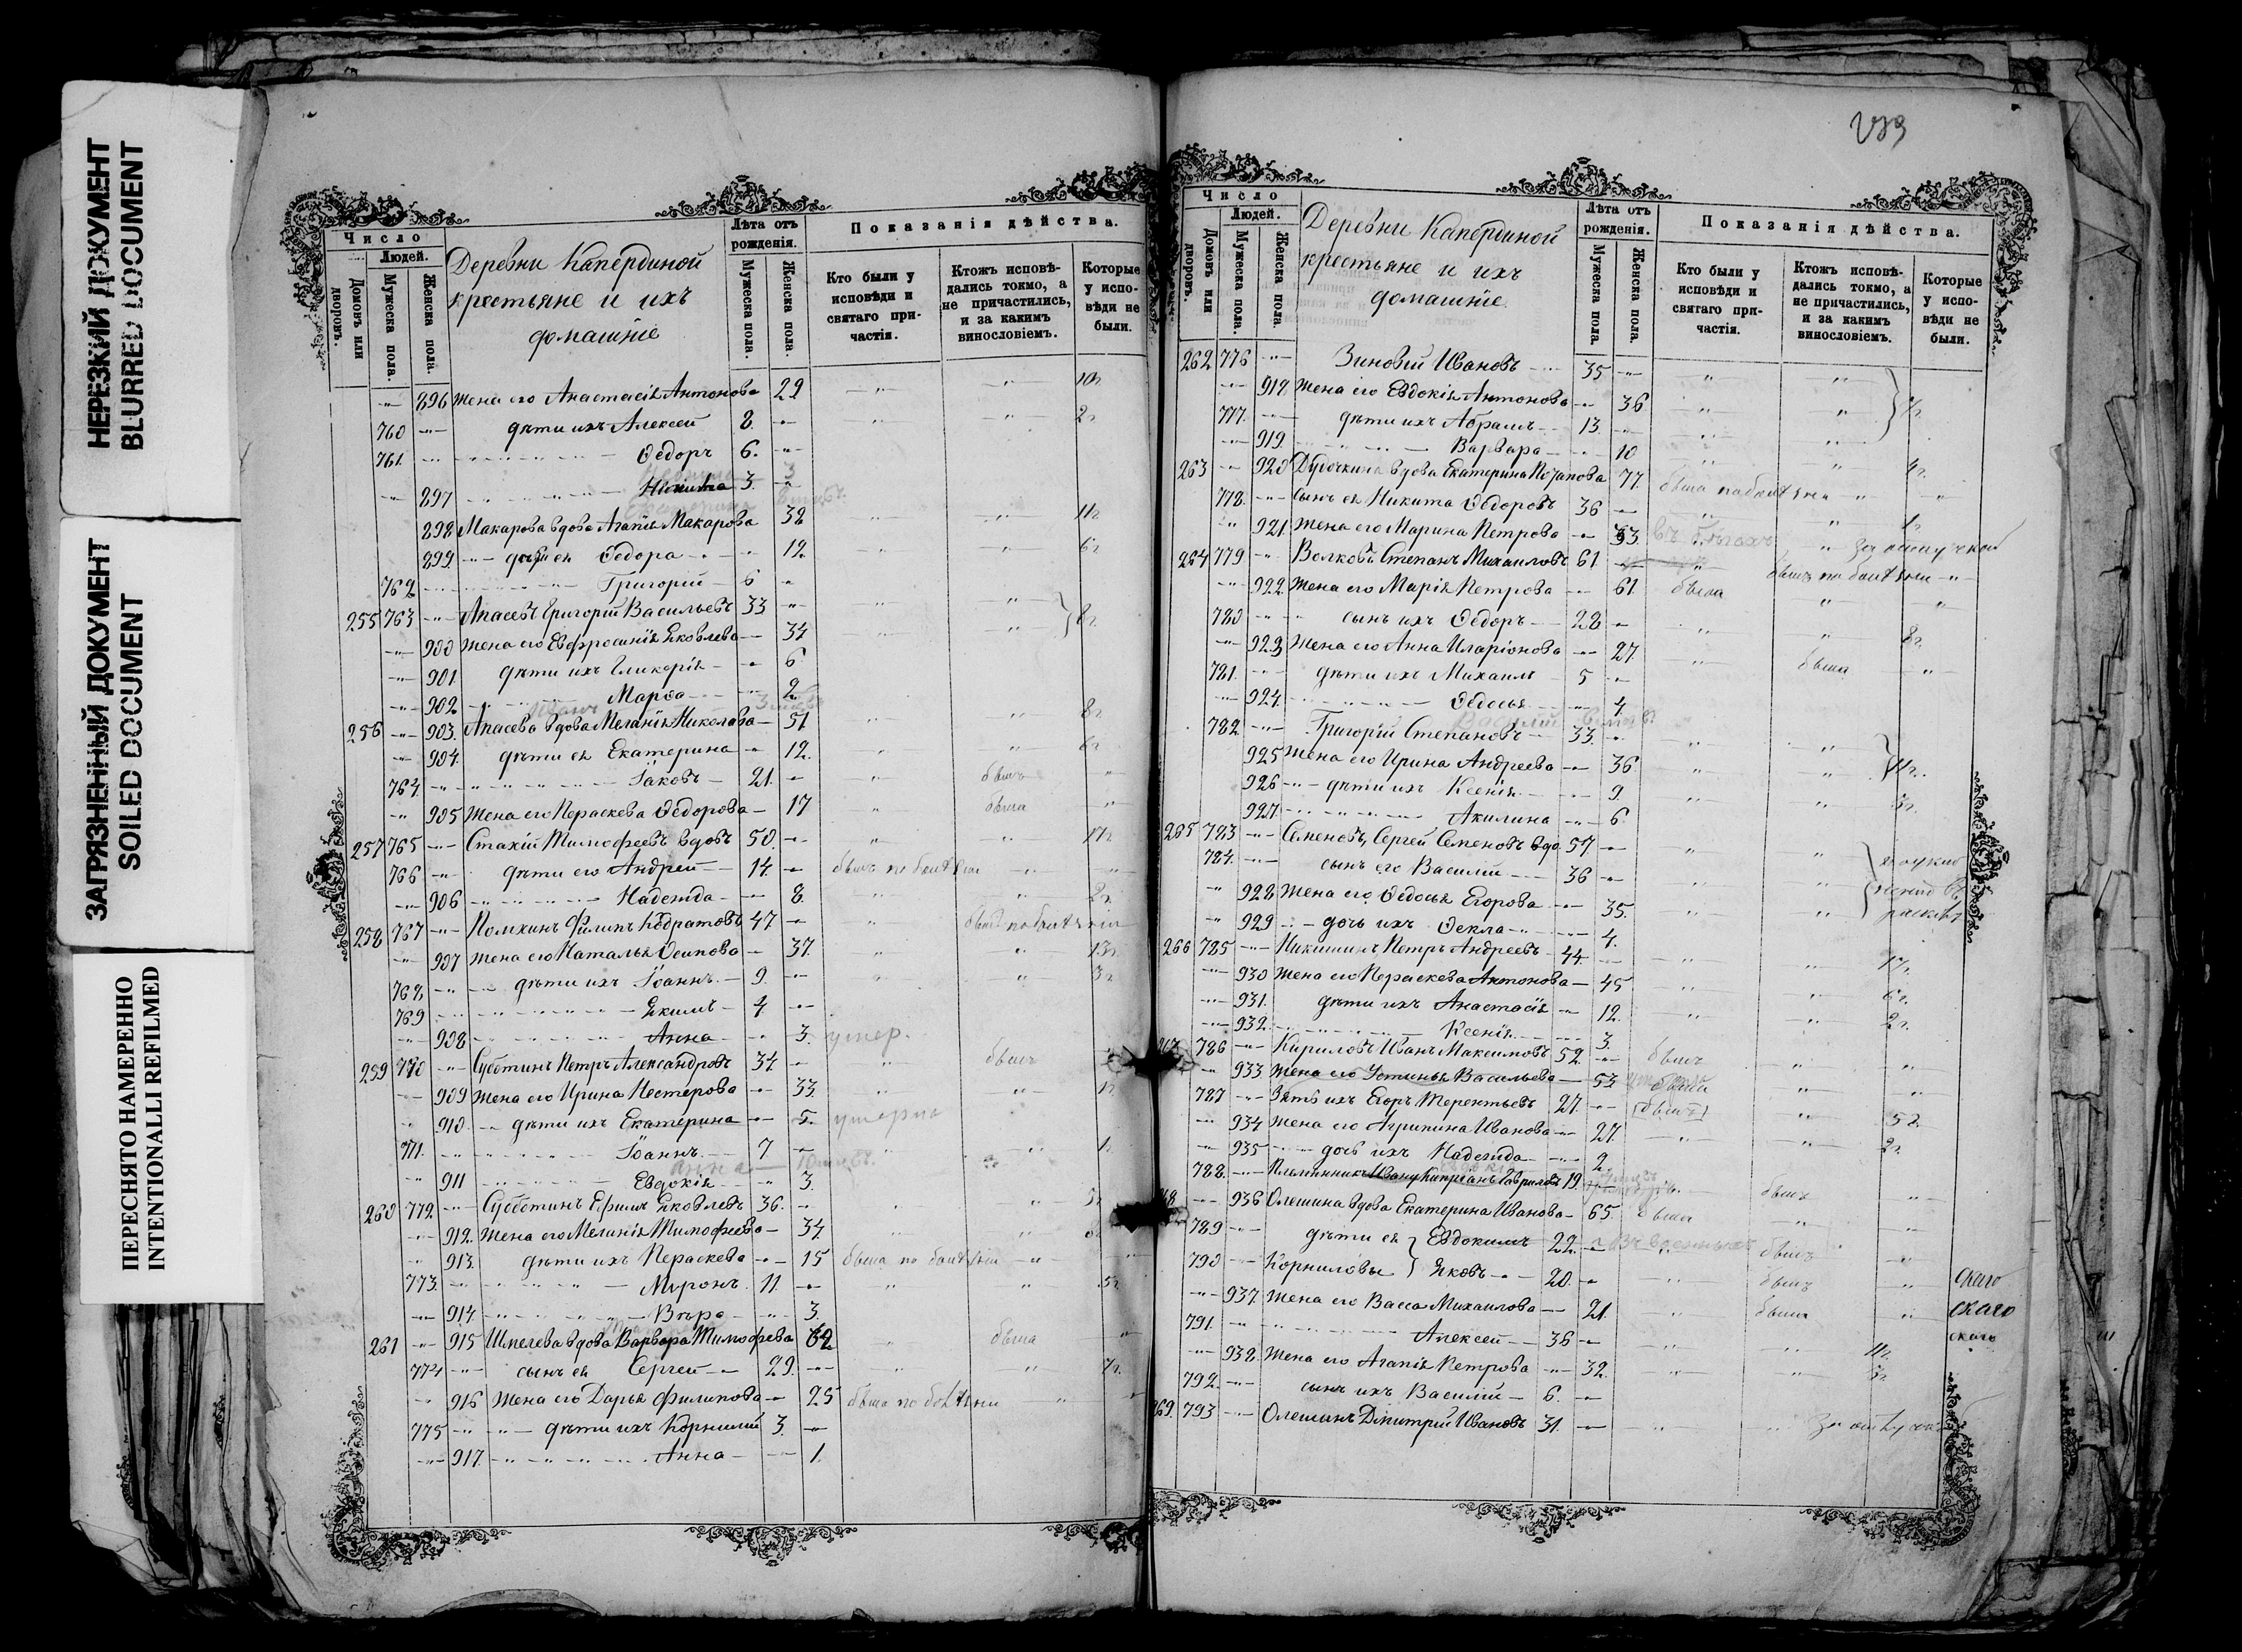 НЕРЕЗКИЙ ДОКУМЕНТ
BLURRED DOCUMENT
ЗАГРЯЗНЕННЫЙ ДОКУМЕНТ
SOILED DOCUMENT
ПЕРЕСНЯТО НАМЕРЕННО
INTENTIONALLI REFILMED
Число
Людей.
Домовъ или дворовъ.
Мужеска пола.
Женска пола.
Деревни Капердиной
крестьяне и ихъ
домашніе
Лѣта отъ рожденія.
Мужеска пола.
Женска пола.
Показанія дѣйства.
Кто были у исповѣди и святаго причастія.
Ктожъ исповѣдались токмо, а не причастились, и за какимъ винословіемъ.
Которые у исповѣди не были.
896 Жена его Анастасія Антонова 29 10г
760 дѣти ихъ Алексей 8. 2г
761. Ѳедоръ 6.
897 3. 3
898 Макарова вдова Агапія Макарова 38 11г
899. ея Ѳедора 12. 6г
762 Григорій 6
255 763 Апасевъ Григорій Васильевъ 33
900 Жена его Евфросинія Яковлева 34 8г
901. дѣти ихъ Гликерія 6
902 Марѳа 2
256 903. Апасева вдова Меланія Николаева 51 8г
904. дѣти ея Екатерина 12. 6г
764. Іаковъ 21. былъ
905 Жена его Параскева Ѳедорова 17 была
257 765 Стахій Тимофеевъ вдовъ 50. 17г
766 дѣти его Андрей 14. былъ по болѣзни
906 Надежда 8. 2г
258 767 Помхинъ Филипъ Кодратовъ 47
907 Жена его Наталья Осипова 37. 13г
768 дѣти ихъ Іоаннъ 9. 3г
769 Екимъ 4
908 Анна 3. умер.
259 770 Субботинъ Петръ Александровъ 34 былъ
909 Жена его Ирина Нестерова 33. 1г
910. дѣти ихъ Екатерина 5. умерла
771. Іоаннъ 7
911 Евдокія 3.
Анна
260 772. Субботинъ Ефимъ Яковлевъ 36. 5г
912. Жена его Меланія Тимофеева 34
913. дѣти ихъ Параскева 15 была по болѣзни
773. Миронъ 11. 5г
914. Вѣра 3.
261 915 Шмелева вдова Варвара Тимофеева 62 была
774 сынъ ея Сергей 29. 7г.
916 Жена его Дарья Филипова 25 была по болѣзни
775 дѣти ихъ Корнилій 3.
917. Анна 1.
Число
Людей.
Домовъ или дворовъ.
Мужеска пола.
Женска пола.
Деревни Капердиной
крестьяне и ихъ
домашніе
Лѣта отъ рожденія.
Мужеска пола.
Женска пола.
Показанія дѣйства.
Кто были у исповѣди и святаго причастія.
Ктожъ исповѣдались токмо, а не причастились, и за какимъ винословіемъ.
Которые у исповѣди не были.
262 776 Зиновій Ивановъ 35
918. Жена его Евдокія Антонова 36
777. дѣти ихъ Абрамъ 13.
919. Варвара 10
263 920 вдова Екатерина Потапова 77. 4г.
778. сынъ ея Никита Ѳедоровъ 36
921. Жена его Марина Петрова 33
264 779 Волковъ Степанъ Михаиловъ 61.
922. Жена его Марія Петрова 61. была
780 сынъ ихъ Ѳедоръ 28
923 Жена его Анна Иларіонова 27. 8г.
781. дѣти ихъ Михаилъ 5 была
924. Ѳедосья 4.
Василій
782. Григорій Степановъ 33.
925 Жена его Ирина Андреева 36 11г.
926 дѣти ихъ Ксенія 9.
927. Акилина 6.
265 783 Семеновъ Сергей Семеновъ вдо. 57
784. сынъ его Василій 36
928 Жена его Ѳедосья Егорова 35.
929 дочь ихъ Ѳекла 4.
266 785 Никишинъ Петръ Андреевъ 44. 17г.
930 Жена его Параскева Антонова 45 6г.
931. дѣти ихъ Анастасія 12. 2г.
932. Ксенія 3.
786 Кириловъ Иванъ Максимовъ 52. былъ
933 Жена его Устинья Васильева 53
787 Зять ихъ Егоръ Терентьевъ 27. былъ
934 Жена его Агрипина Иванова 27. 5г.
935 дочь ихъ Надежда 2. 2г.
788. Племянникъ Кипріанъ Гавриловъ 19. былъ
936 Олешина вдова Екатерина Иванова 65. была
789 дѣти ея Евдокимъ 22. былъ
790 Корниловы Яковъ 20. былъ
937. Жена его Васса Михаилова 21. была
791. Алексей 36 11г.
938. Жена его Агапія Петрова 32.
792. сынъ ихъ Василій 6.
269. 793 Олешинъ Дмитрій Ивановъ 31.
скаго
скаго
скаго